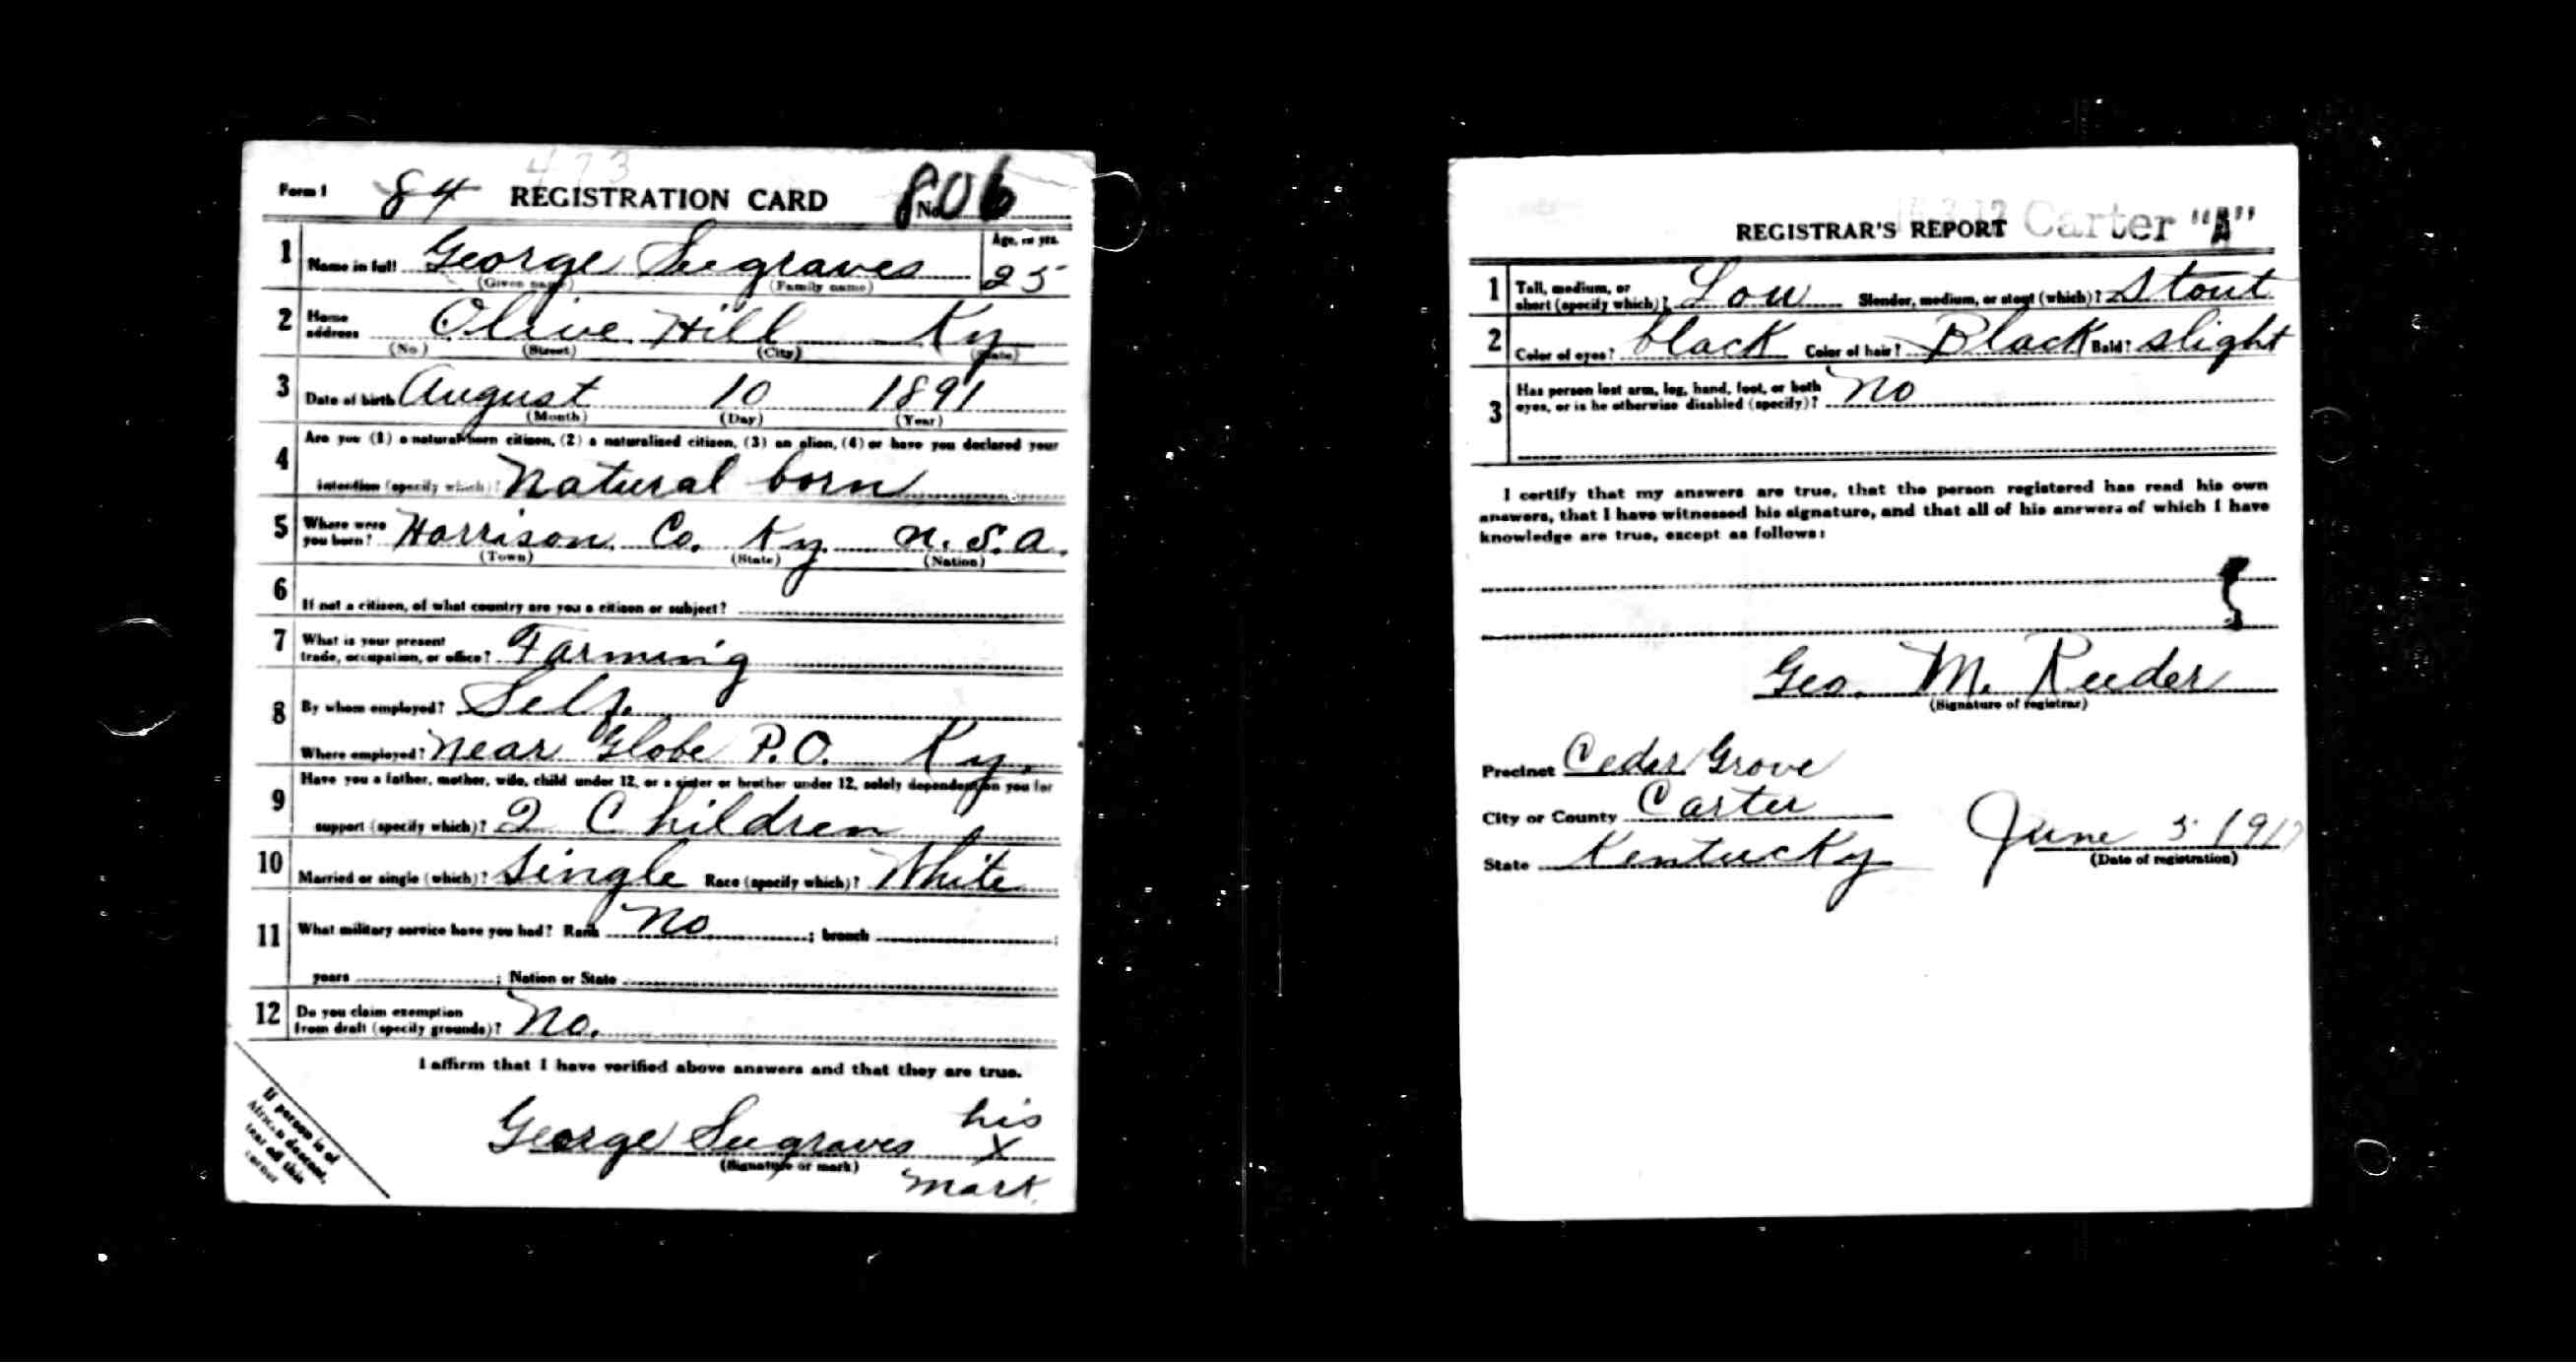 473
Form 1 84 REGISTRATION CARD No. 806
1 Name in full George Seegraves Age, in yrs. 25
(Given name) (Family name)
2 Home address Olive Hill Ky
(No.) (Street) (City) (State)
3 Date of birth August 10 1891
(Month) (Day) (Year)
4 Are you (1) a natural-born citizen, (2) a naturalized citizen, (3) an alien, (4) or have you declared your
intention (specify which)? Natural born
5 Where were you born? Harrison Co. Ky. U.S.A.
(Town) (State) (Nation)
6 If not a citizen, of what country are you a citizen or subject?
7 What is your present trade, occupation, or office? Farming
8 By whom employed? Self.
Where employed? Near Globe P.O. Ky.
9 Have you a father, mother, wife, child under 12, or a sister or brother under 12, solely dependent on you for
support (specify which)? 2 Children
10 Married or single (which)? Single Race (specify which)? White
11 What military service have you had? Rank No ; branch ;
years ; Nation or State
12 Do you claim exemption from draft (specify grounds)? No.
I affirm that I have verified above answers and that they are true.
George Seegraves his X mark
(Signature or mark)
If person is of
African descent,
tear off this
corner
REGISTRAR'S REPORT Carter "A"
1 Tall, medium, or short (specify which)? Low Slender, medium, or stout (which)? Stout
2 Color of eyes? black Color of hair? Black Bald? slight
3 Has person lost arm, leg, hand, foot, or both eyes, or is he otherwise disabled (specify)? No
I certify that my answers are true, that the person registered has read his own
answers, that I have witnessed his signature, and that all of his answers of which I have
knowledge are true, except as follows:
Geo. M. Reeder
(Signature of registrar)
Precinct Cedar Grove
City or County Carter
State Kentucky
June 5 1917
(Date of registration)